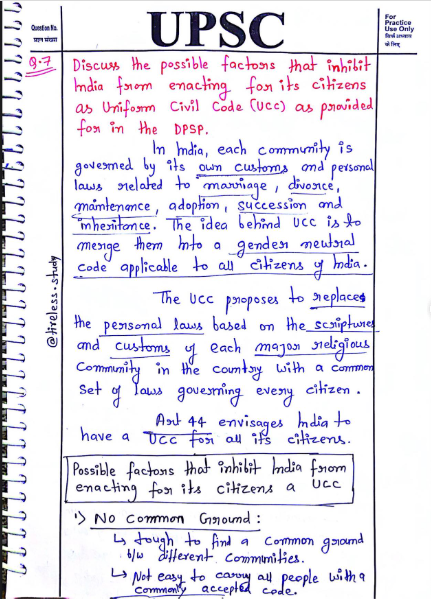 Question No.
प्रश्न संख्या
UPSC
For
Practice
Use Only
सिर्फ अभ्यास
के लिए
Q.7
Discuss the possible factors that inhibit
India from enacting for its citizens
as Uniform Civil Code (UCC) as provided
for in the DPSP.
In India, each community is
governed by its own customs and personal
laws related to marriage, divorce,
maintenance, adoption, succession and
inheritance. The idea behind UCC is to
merge them Into a gender neutral
code applicable to all citizens of India.
The UCC proposes to replaces
the personal laws based on the scriptures
and customs of each major religious
Community in the country with a common
Set of laws governing every citizen.
Art 44 envisages India to
have a UCC for all its citizens.
Possible factors that inhibit India from
enacting for its citizens a UCC
1) No Common Ground :
↳ tough to find a common ground
b/w different Communities.
↳ Not easy to carry all people with a
commonly accepted code.
@tireless.study